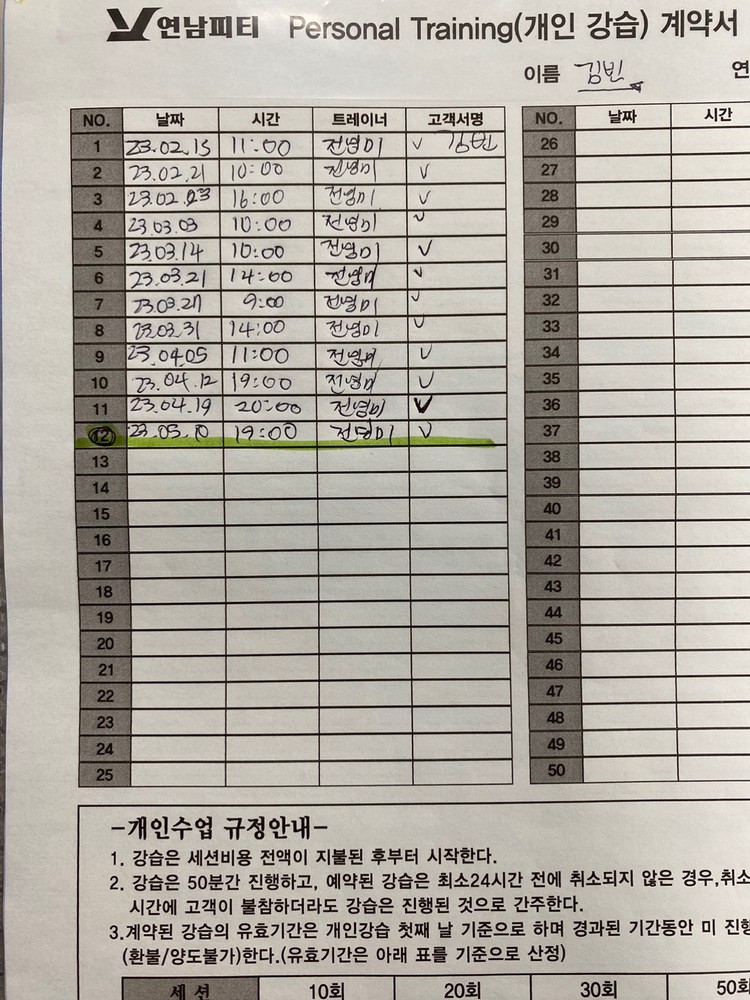 연남피티 Personal Training(개인 강습) 계약서
이름 김빈 연
NO. 날짜 시간 트레이너 고객서명 NO. 날짜 시간
1 23.02.15 11:00 전영미 ✓ 김빈 26
2 23.02.21 10:00 전영미 ✓ 27
3 23.02.23 16:00 전영미 ✓ 28
4 23.03.03 10:00 전영미 ✓ 29
5 23.03.14 10:00 전영미 ✓ 30
6 23.03.21 14:00 전영미 ✓ 31
7 23.03.27 9:00 전영미 ✓ 32
8 23.03.31 14:00 전영미 ✓ 33
9 23.04.05 11:00 전영미 ✓ 34
10 23.04.12 19:00 전영미 ✓ 35
11 23.04.19 20:00 전영미 ✓ 36
12 23.05.10 19:00 전영미 ✓ 37
13 38
14 39
15 40
16 41
17 42
18 43
19 44
20 45
21 46
22 47
23 48
24 49
25 50
-개인수업 규정안내-
1. 강습은 세션비용 전액이 지불된 후부터 시작한다.
2. 강습은 50분간 진행하고, 예약된 강습은 최소24시간 전에 취소되지 않은 경우,취소
시간에 고객이 불참하더라도 강습은 진행된 것으로 간주한다.
3.계약된 강습의 유효기간은 개인강습 첫째 날 기준으로 하며 경과된 기간동안 미 진행
(환불/양도불가)한다.(유효기간은 아래 표를 기준으로 산정)
세 션 10회 20회 30회 50회